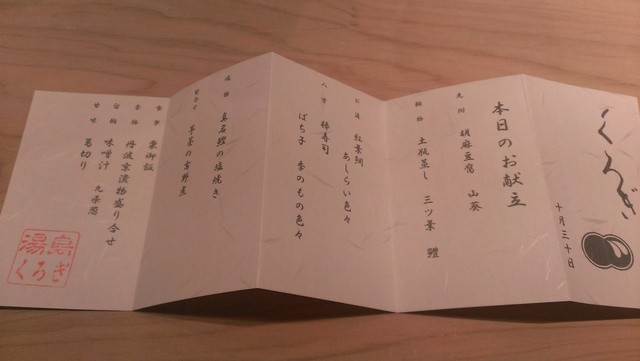 くろぎ
十月三十日
本日のお献立
先附 胡麻豆腐 山葵
椀物 土瓶蒸し 三ツ葉 鱧
お造 紅葉鯛
あしらい色々
八寸 柿寿司
ばち子 季のもの色々
焼物 真名鰹の塩焼き
の吉野煮
食事 栗御飯
香物 丹波京漬物盛り合せ
留椀 味噌汁 九条葱
甘味 葛切り
湯島
くろぎ